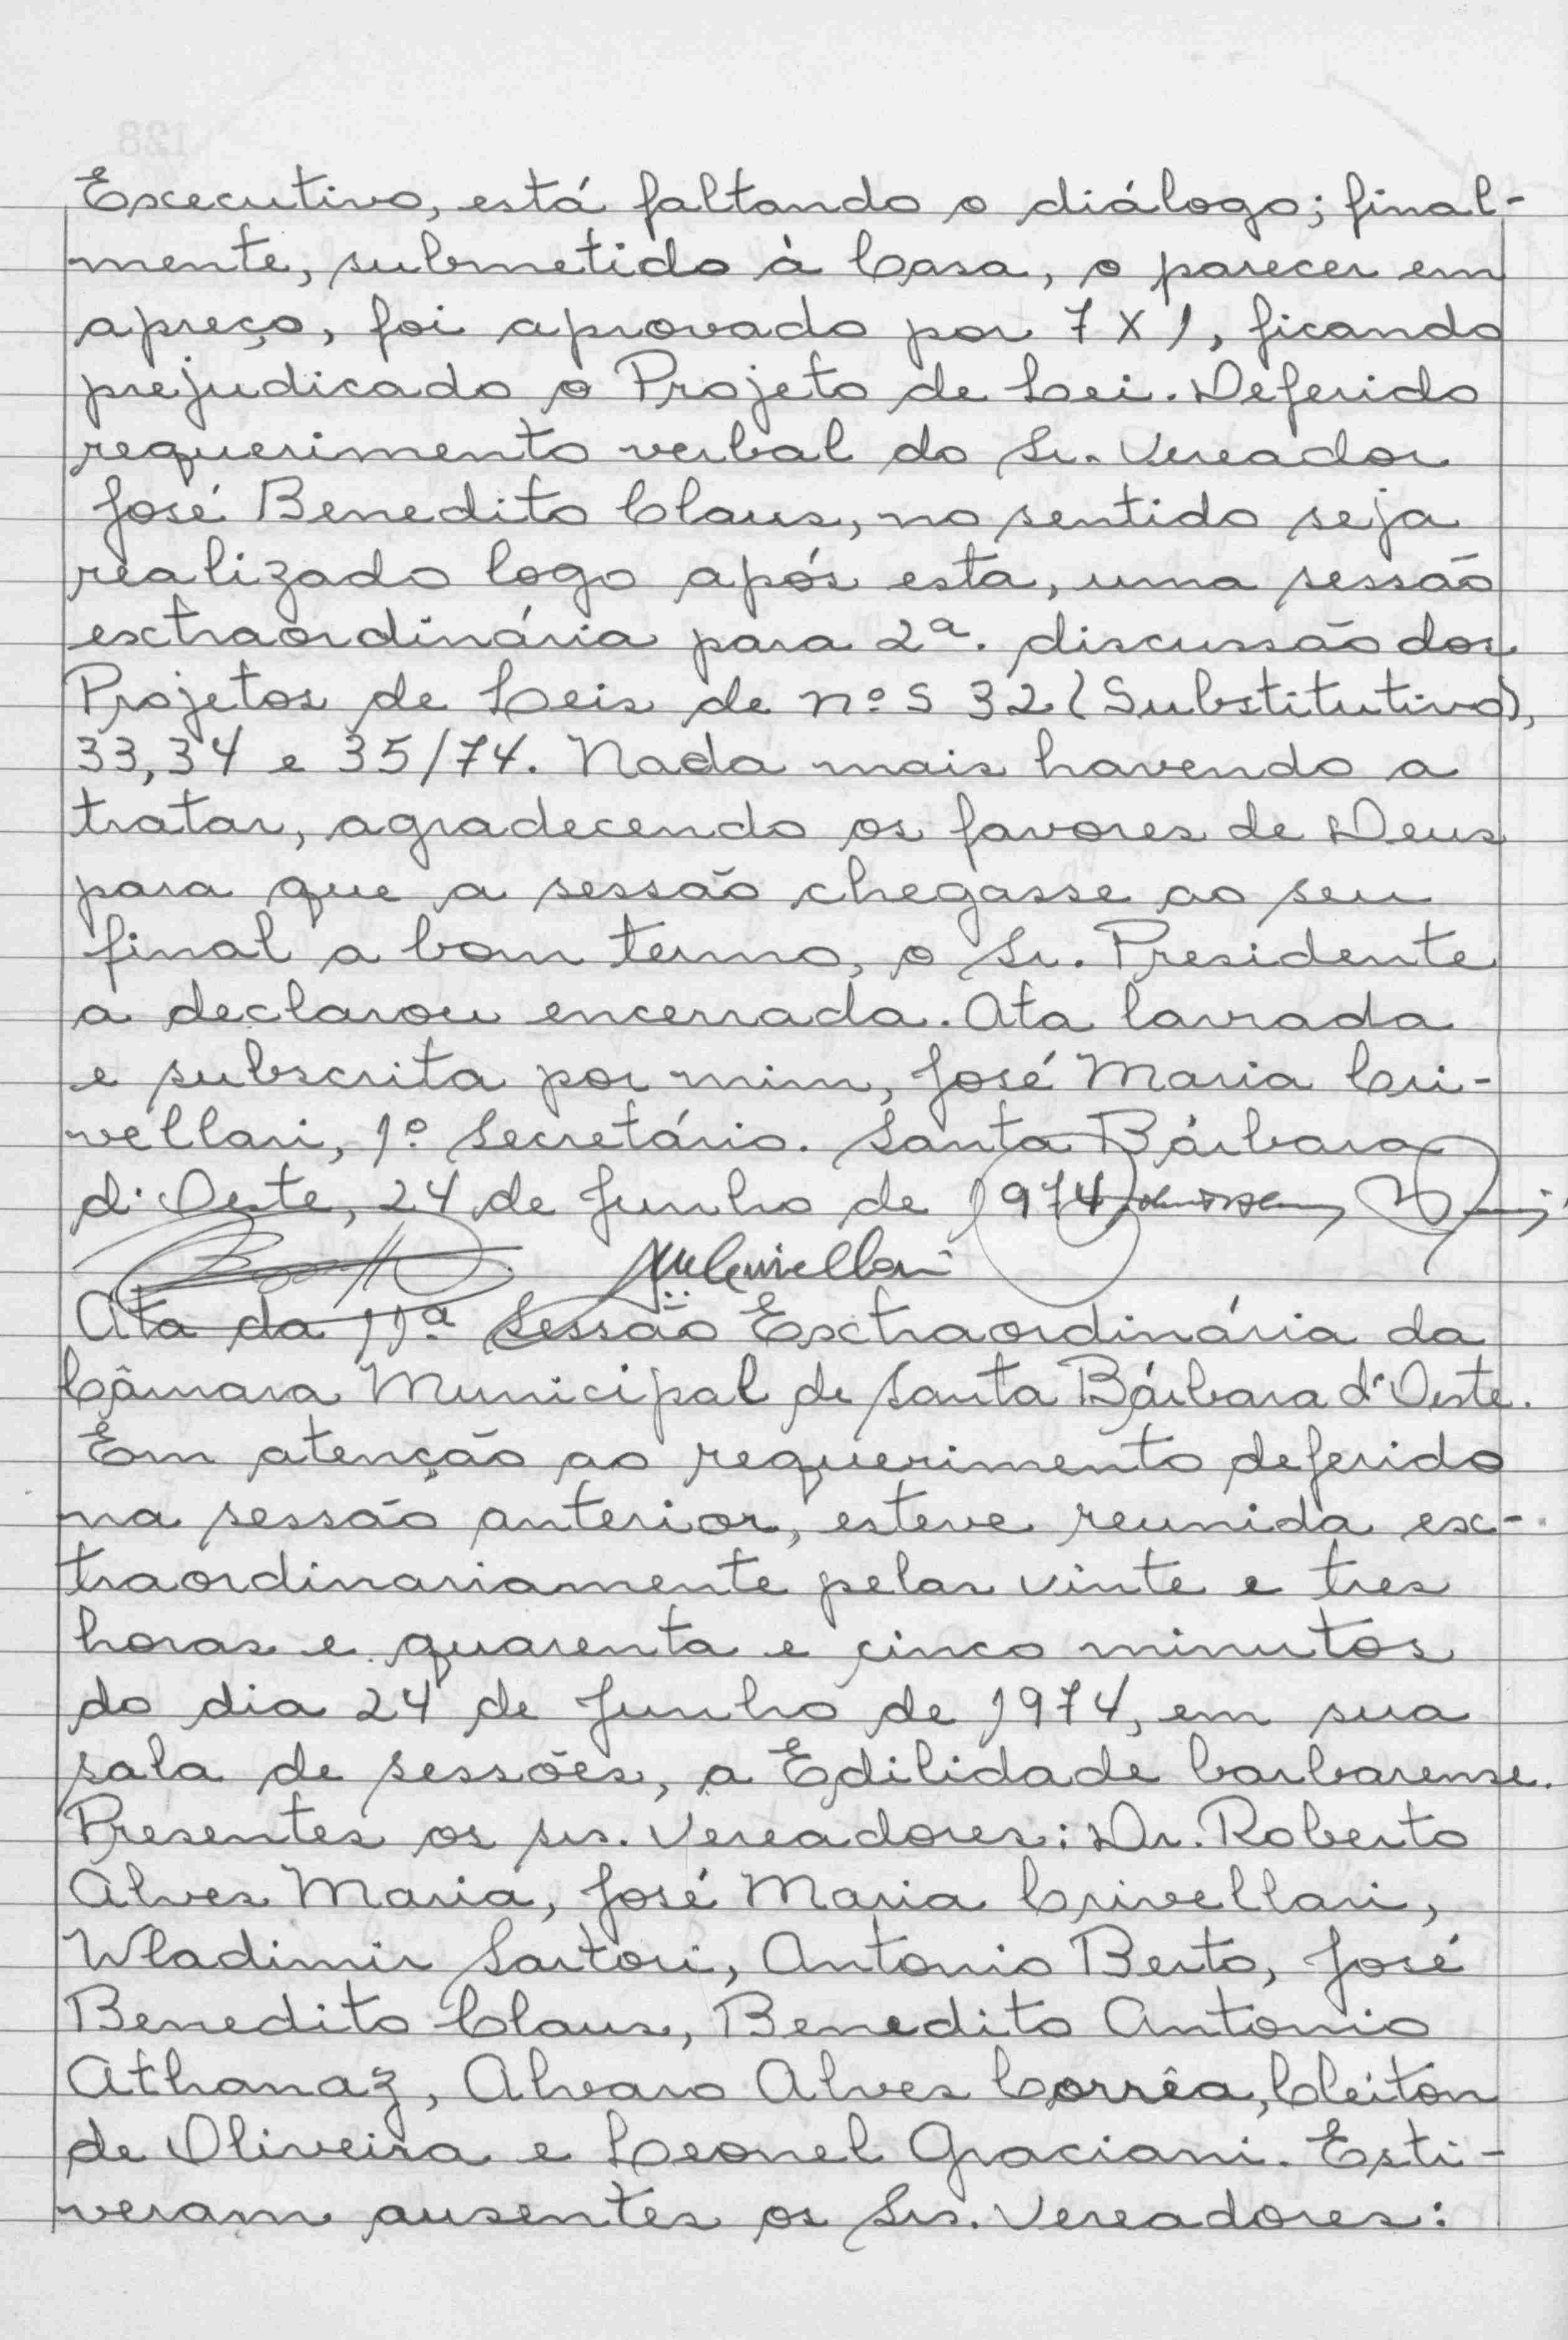 Executivo, está faltando o diálogo; final-
mente, submetido à Casa, o parecer em
apreço, foi aprovado por 7 X 1, ficando
prejudicado o Projeto de Lei. Deferido
requerimento verbal do Sr. Vereador
José Benedito Claus, no sentido seja
realizado logo após esta, uma sessão
extraordinária para 2ª. discussão dos
Projetos de Leis de nºs 32 (Substitutivo),
33, 34 e 35/74. Nada mais havendo a
tratar, agradecendo os favores de Deus
para que a sessão chegasse ao seu
final a bom termo, o Sr. Presidente
a declarou encerrada. Ata lavrada
e subscrita por mim, José Maria Cri-
vellari, 1º Secretário. Santa Bárbara
d'Oeste, 24 de Junho de 1974
JMCrivellari
Ata da 11ª Sessão Extraordinária da
Câmara Municipal de Santa Bárbara d'Oeste.
Em atenção ao requerimento deferido
na sessão anterior, esteve reunida ex-
traordinariamente pelas vinte e tres
horas e quarenta e cinco minutos
do dia 24 de Junho de 1974, em sua
sala de sessões, a Edilidade barbarense.
Presentes os srs. Vereadores: Dr. Roberto
Alves Maria, José Maria Crivellari,
Wladimir Sartori, Antonio Berto, José
Benedito Claus, Benedito Antonio
Athanaz, Alvaro Alves Corrêa, Cleiton
de Oliveira e Leonel Graciani. Esti-
veram ausentes os Srs. Vereadores: